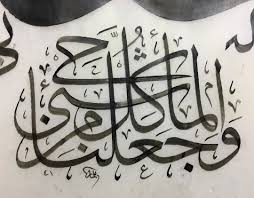 وجعلنا من الماء كل شيء حي